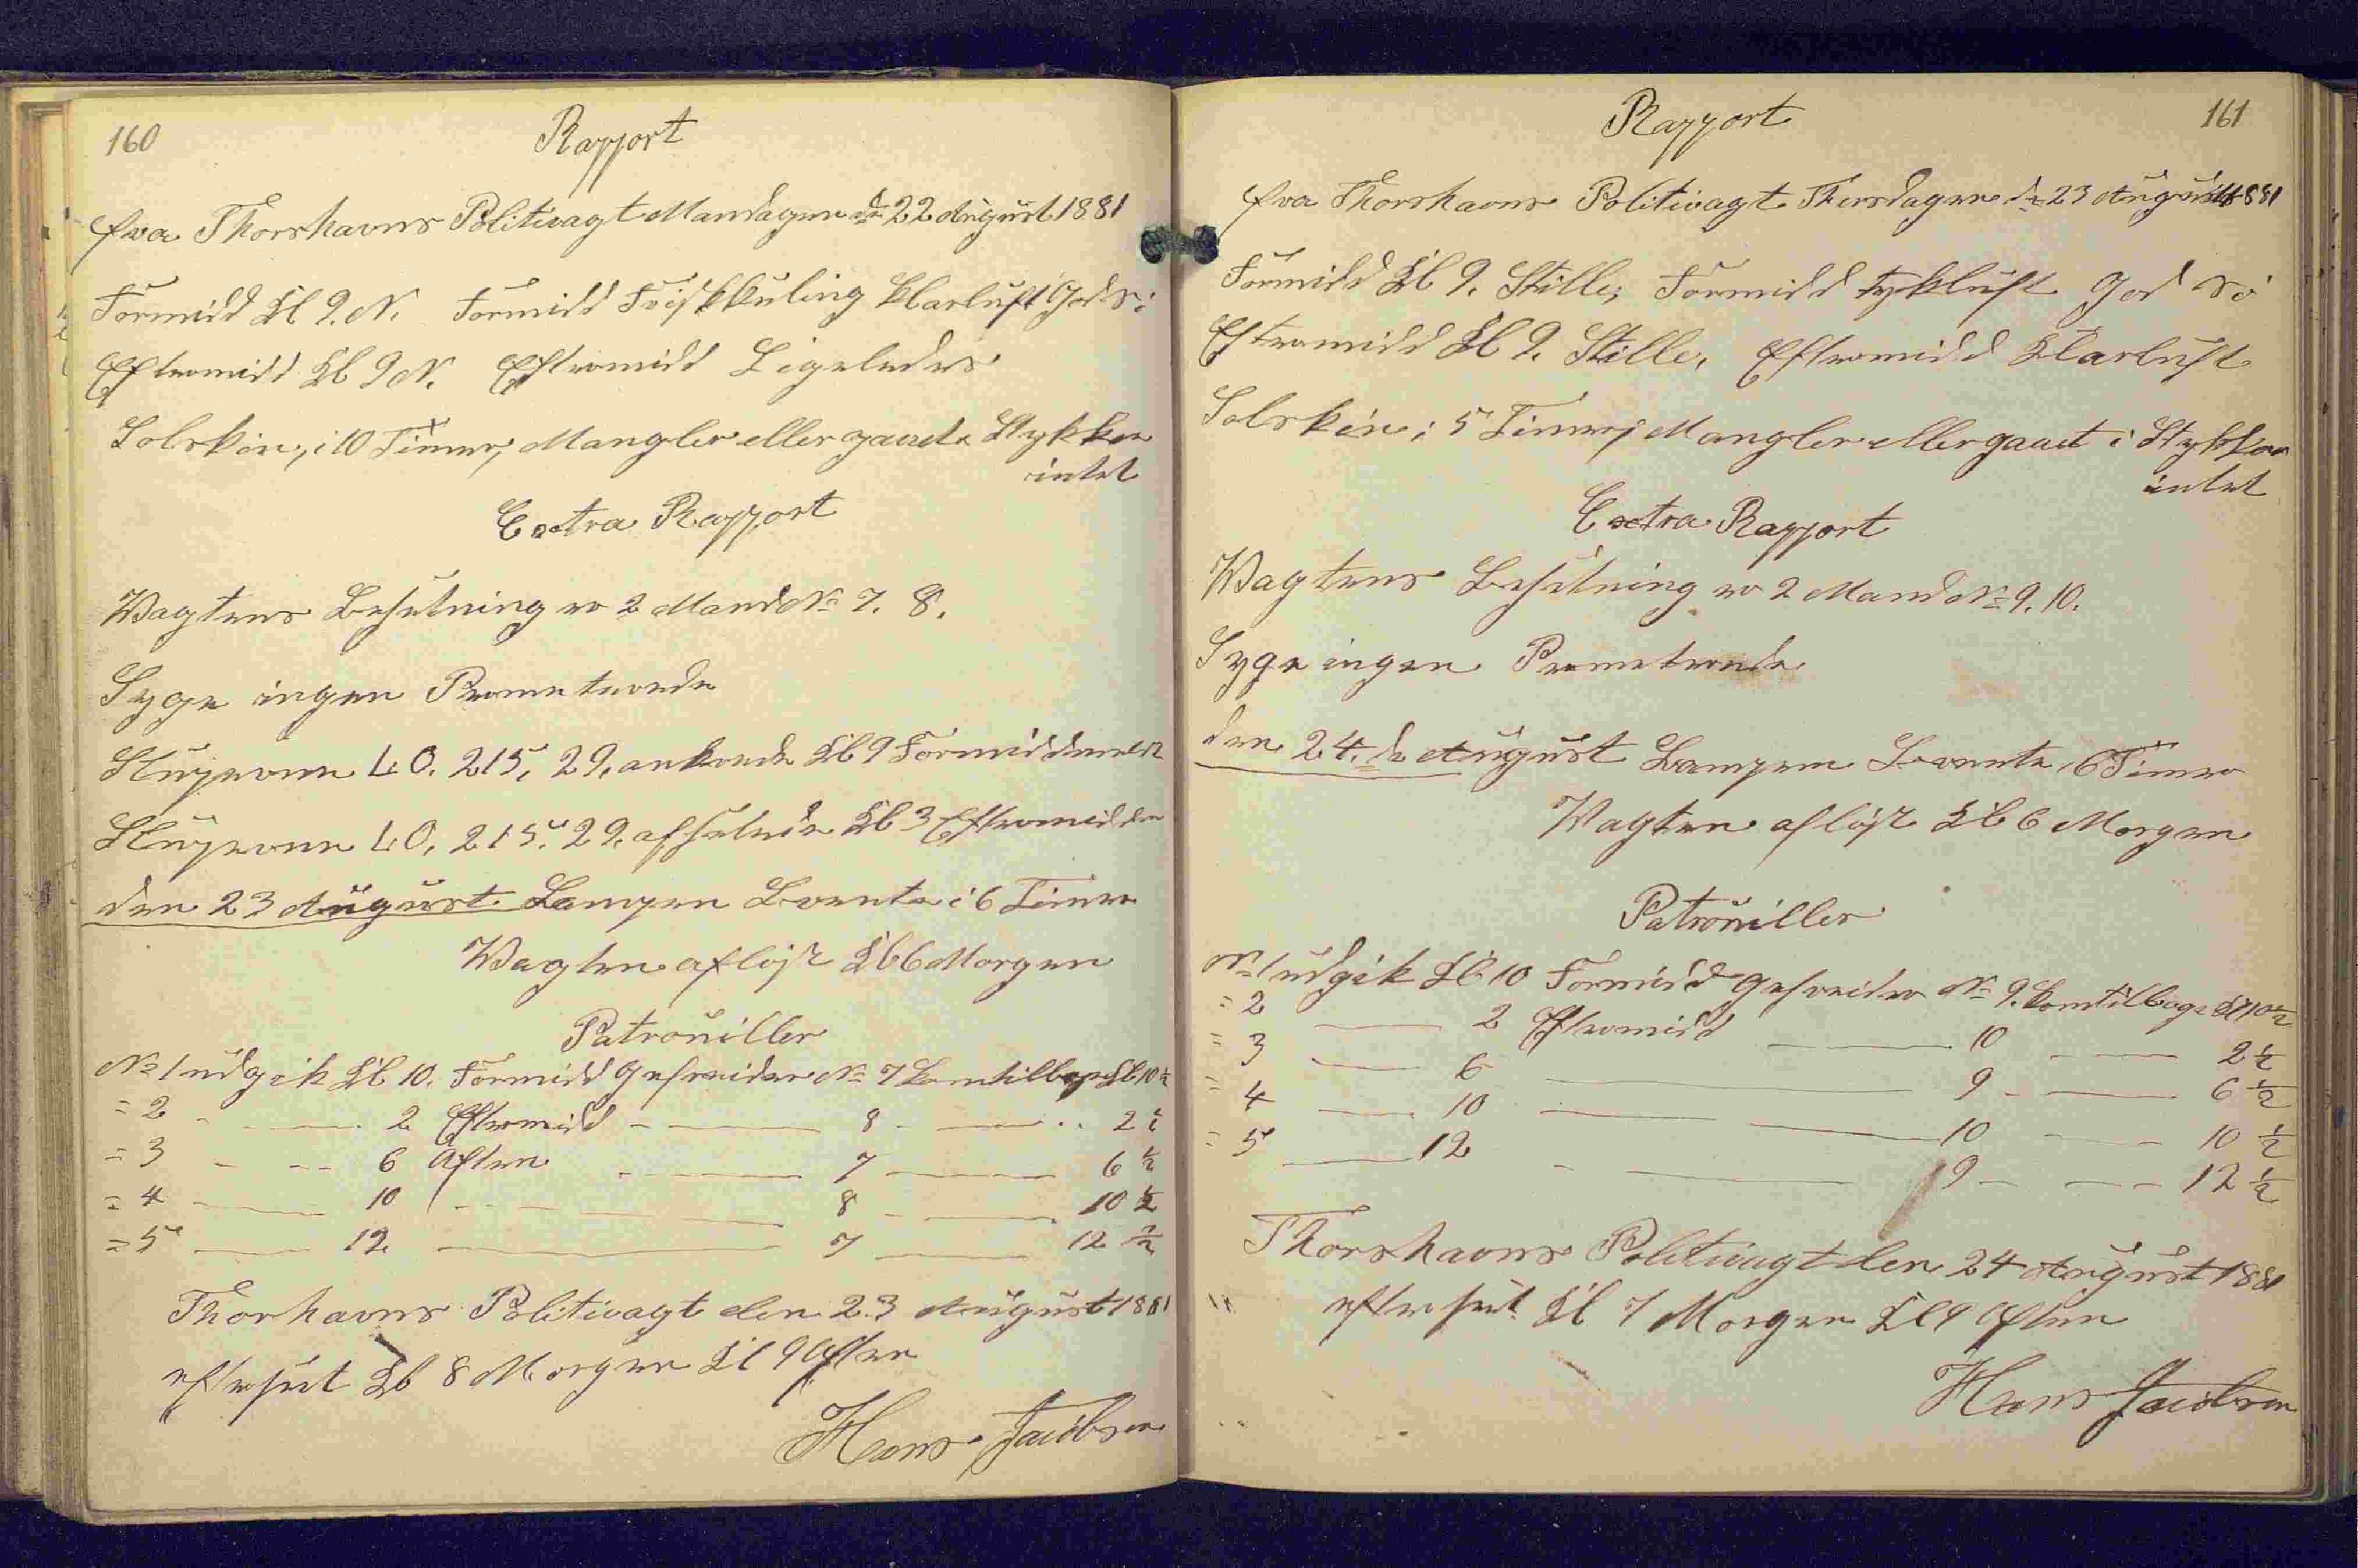 160
Rapport
fra Thorshavns Politivagt Mandagen dn 22 August 1881
Formidd Kl 9. N. Formidd Friskkuling klarluft God Sö
Eftermidd Kl 9 N. Eftermidd Ligeledes
Solskin, i 10 Timer, Mangler eller gaaet i Stykker
intet
Extra Rapport
Vagtens Besetning er 2 Mand No 7. 8.
Syge ingen Permeterede
den 23 August Lampen Brente i 6 Timer
Vagten aflöst Kl 6 Morgen
Patrouiller
No 1 udgik Kl 10. Formidd Gefreider No 7 komtilbage Kl 10 ½
= 2 — 2 Eftermidd — 8 — 2 ½
= 3 — 6 Aften — 7 — 6 ½
= 4 — 10 — 8 — 10 ½
= 5 — 12 — 7 — 12 ½
Thorhavns Politivagt den 23 August 1881
efterset Kl 8 Morgen Kl 9 Aften
Hans Jacobsen
161
Rapport
fra Thorshavns Politivagt Thirsdagen dn 23 August 1881
Formidd Kl 9. Stille, Formidd tykluft God Sö
Eftermidd Kl 9. Stille, Eftermidd Klarluft
Solskin i 5 Timer, Mangler eller gaaet i Stykker
intet
Extra Rapport
Vagtens Besetning er 2 Mand No 9. 10.
Syge ingen Permeterede
den 24. de August Lampen Brente 6 Timer
Vagten aflöst Kl 6 Morgen
Patrouiller
No 1 udgik Kl 10 Formidd Gefreider No 9. komtilbage Kl 10 ½
= 2 — 2 Eftermidd — 10 — 2 ½
= 3 — 6 — 9 — 6 ½
= 4 — 10 — 10 — 10 ½
= 5 — 12 — 9 — 12 ½
Thorshavns Politivagt den 24 August 1881
efterset Kl 7 Morgen Kl 9 Aften
Hans Jacobsen